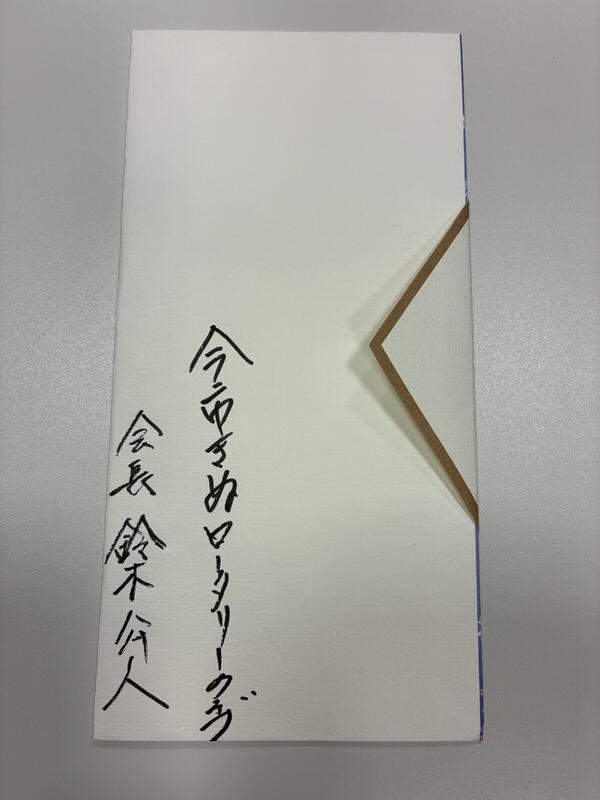 今市きぬロータリークラブ
会長 鈴木公人